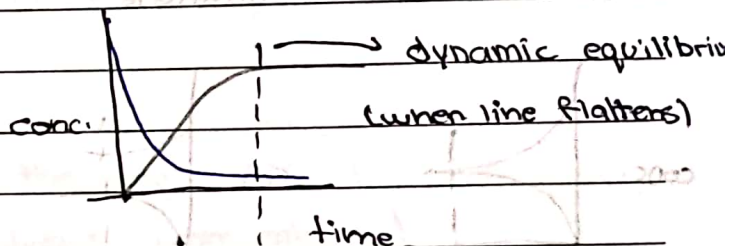 dynamic equilibriu
conc.
(when line flattens)
time